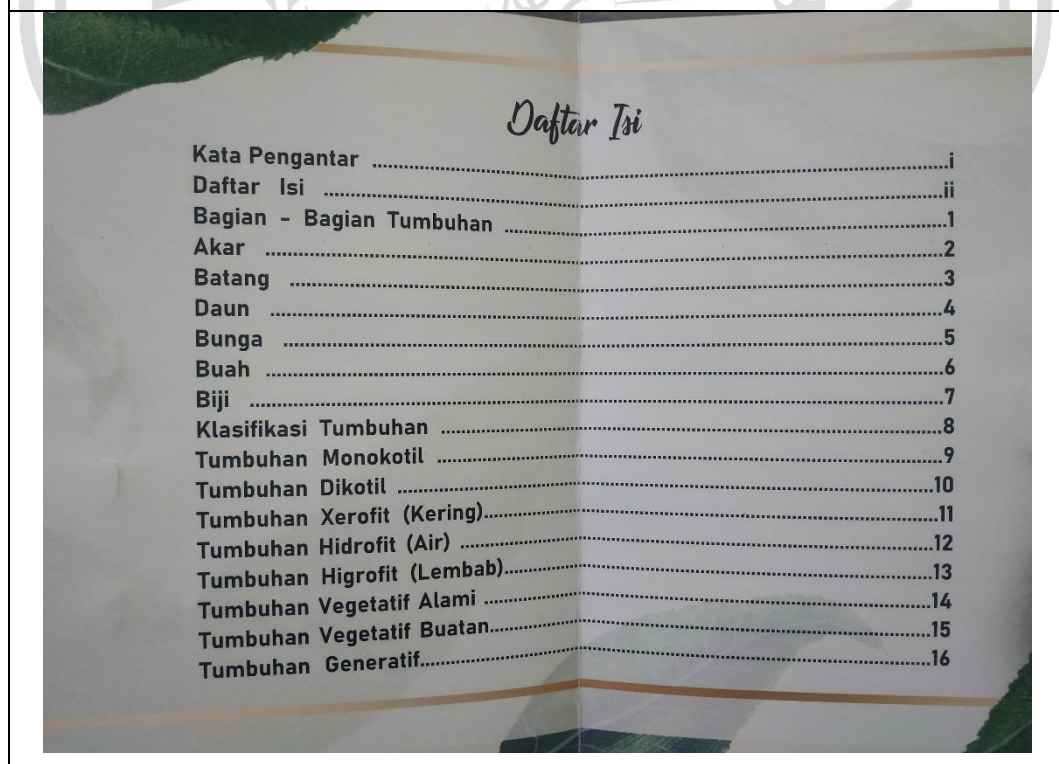 Daftar Isi
Kata Pengantar ........................i
Daftar Isi ........................ii
Bagian - Bagian Tumbuhan ........................1
Akar ........................2
Batang ........................3
Daun ........................4
Bunga ........................5
Buah ........................6
Biji ........................7
Klasifikasi Tumbuhan ........................8
Tumbuhan Monokotil ........................9
Tumbuhan Dikotil ........................10
Tumbuhan Xerofit (Kering)........................11
Tumbuhan Hidrofit (Air) ........................12
Tumbuhan Higrofit (Lembab)........................13
Tumbuhan Vegetatif Alami ........................14
Tumbuhan Vegetatif Buatan........................15
Tumbuhan Generatif........................16